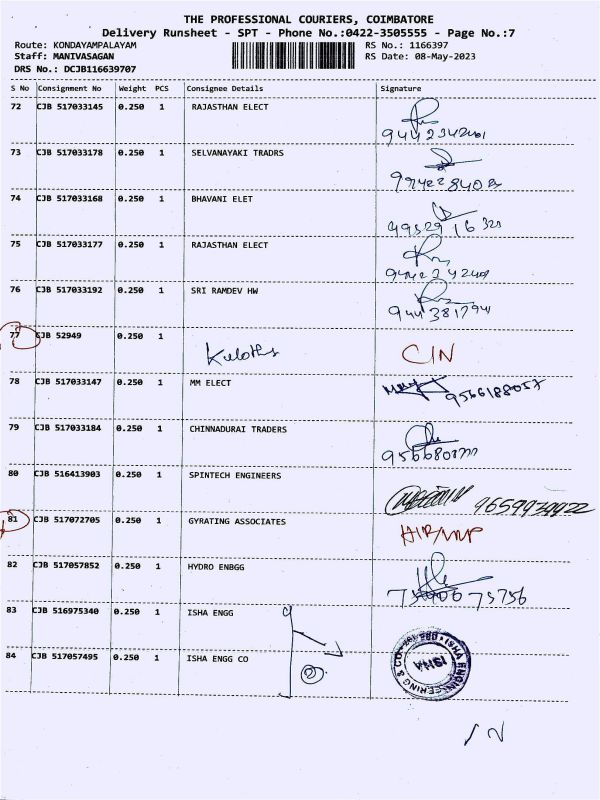 THE PROFESSIONAL COURIERS, COIMBATORE
Delivery Runsheet - SPT - Phone No.:0422-3505555 - Page No.:7
Route: KONDAYAMPALAYAM RS No.: 1166397
Staff: MANIVASAGAN RS Date: 08-May-2023
DRS No.: DCJB116639707
S No Consignment No Weight PCS Consignee Details Signature
72 CJB 517033145 0.250 1 RAJASTHAN ELECT
73 CJB 517033178 0.250 1 SELVANAYAKI TRADRS
74 CJB 517033168 0.250 1 BHAVANI ELET
75 CJB 517033177 0.250 1 RAJASTHAN ELECT
76 CJB 517033192 0.250 1 SRI RAMDEV HW
77 CJB 52949 0.250 1
CIN
78 CJB 517033147 0.250 1 MM ELECT
9566188057
79 CJB 517033184 0.250 1 CHINNADURAI TRADERS
80 CJB 516413903 0.250 1 SPINTECH ENGINEERS
9659939922
81 CJB 517072705 0.250 1 GYRATING ASSOCIATES
82 CJB 517057852 0.250 1 HYDRO ENBGG
83 CJB 516975340 0.250 1 ISHA ENGG
84 CJB 517057495 0.250 1 ISHA ENGG CO
2
ISHA ENGINEERING & CO
ISHA